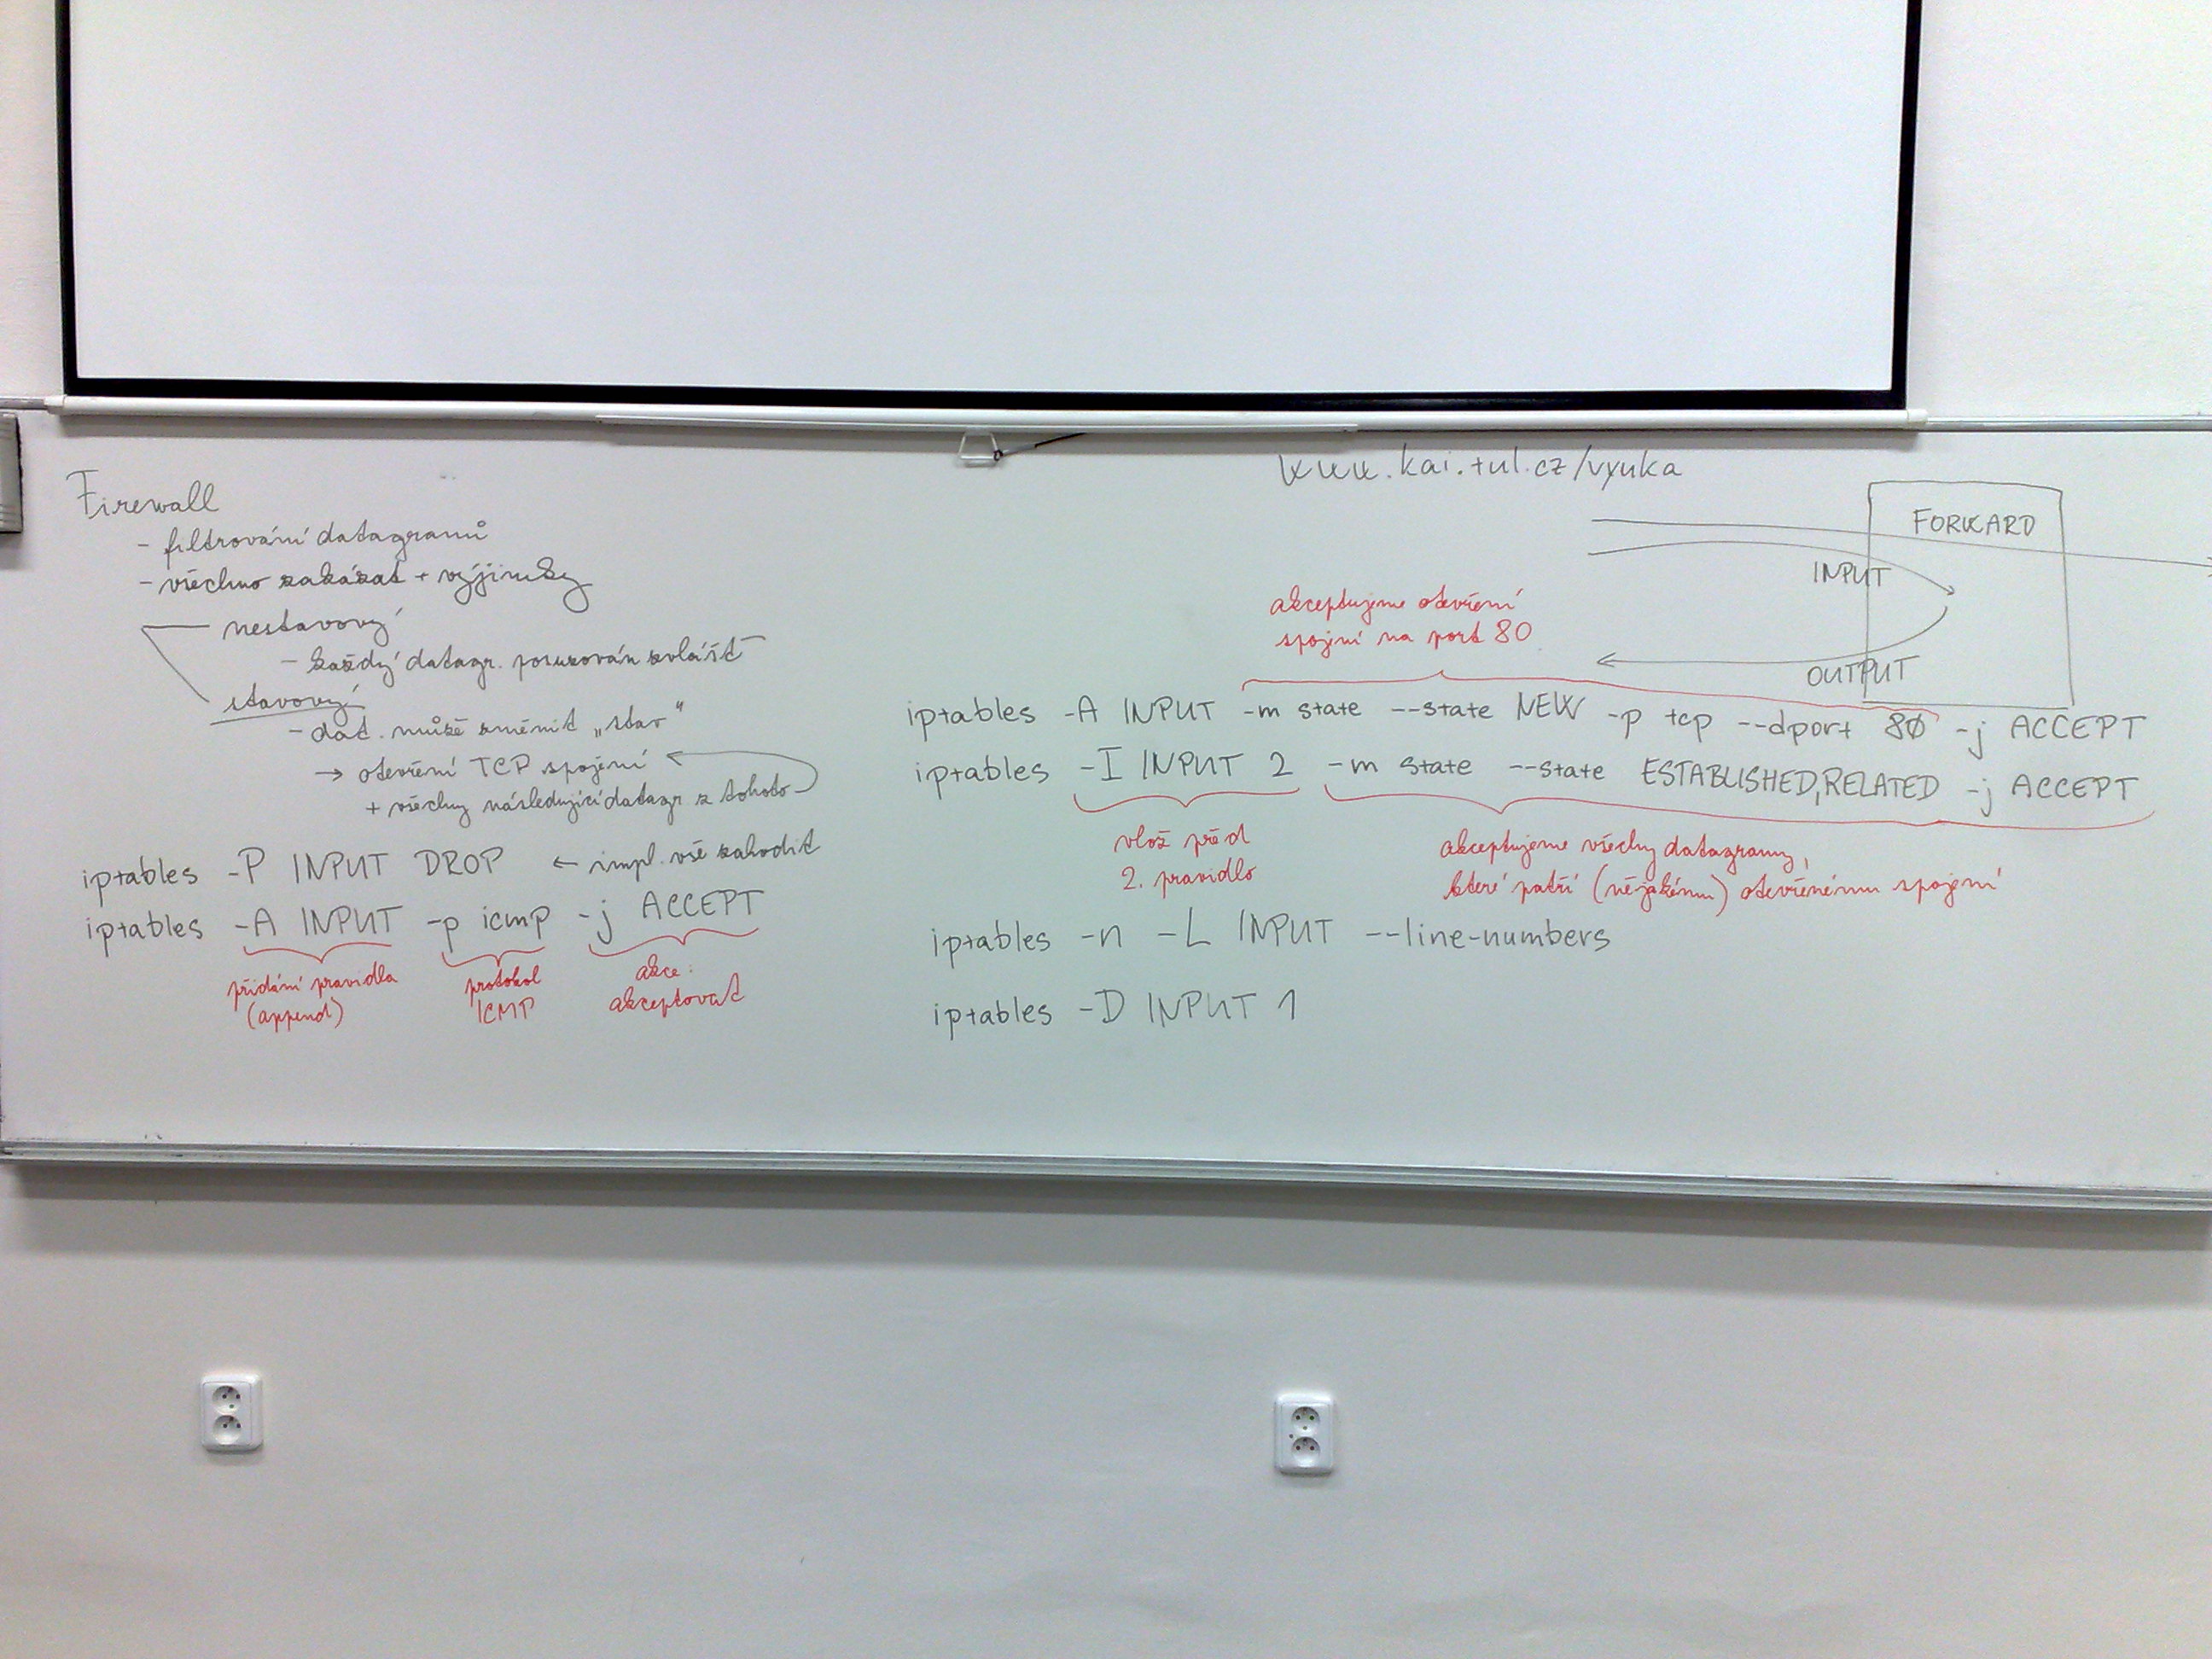 Firewall
- filtrování datagramů
- všechno zakázat + výjimky
nestavový
- každý datagr. posuzován zvlášť
stavový
- dat. může změnit „stav"
→ otevření TCP spojení
+ všechny následující datagr z tohoto
iptables -P INPUT DROP ← impl. vše zahodit
iptables -A INPUT -p icmp -j ACCEPT
přidání pravidla
(append)
protokol
ICMP
akce:
akceptovat
www.kai.tul.cz/vyuka
FORWARD
INPUT
OUTPUT
akceptujeme otevření
spojení na port 80
iptables -A INPUT -m state --state NEW -p tcp --dport 80 -j ACCEPT
iptables -I INPUT 2 -m state --state ESTABLISHED,RELATED -j ACCEPT
vlož před
2. pravidlo
akceptujeme všechny datagramy,
které patří (nějakému) otevřenému spojení
iptables -n -L INPUT --line-numbers
iptables -D INPUT 1